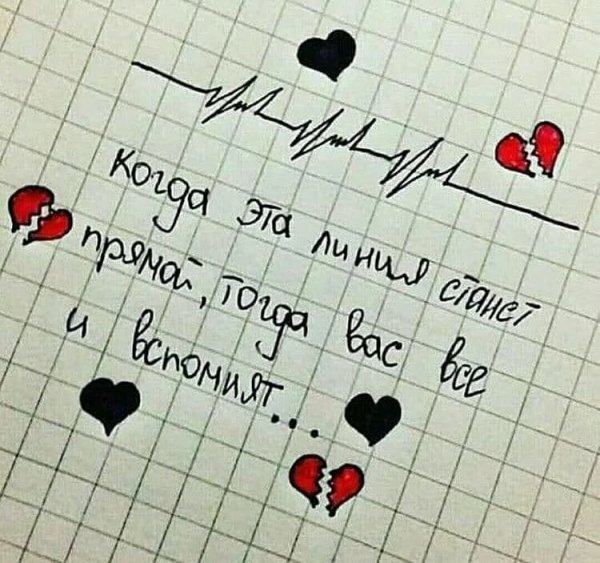 Когда эта линия станет
прямой, тогда вас все
и вспомнят...